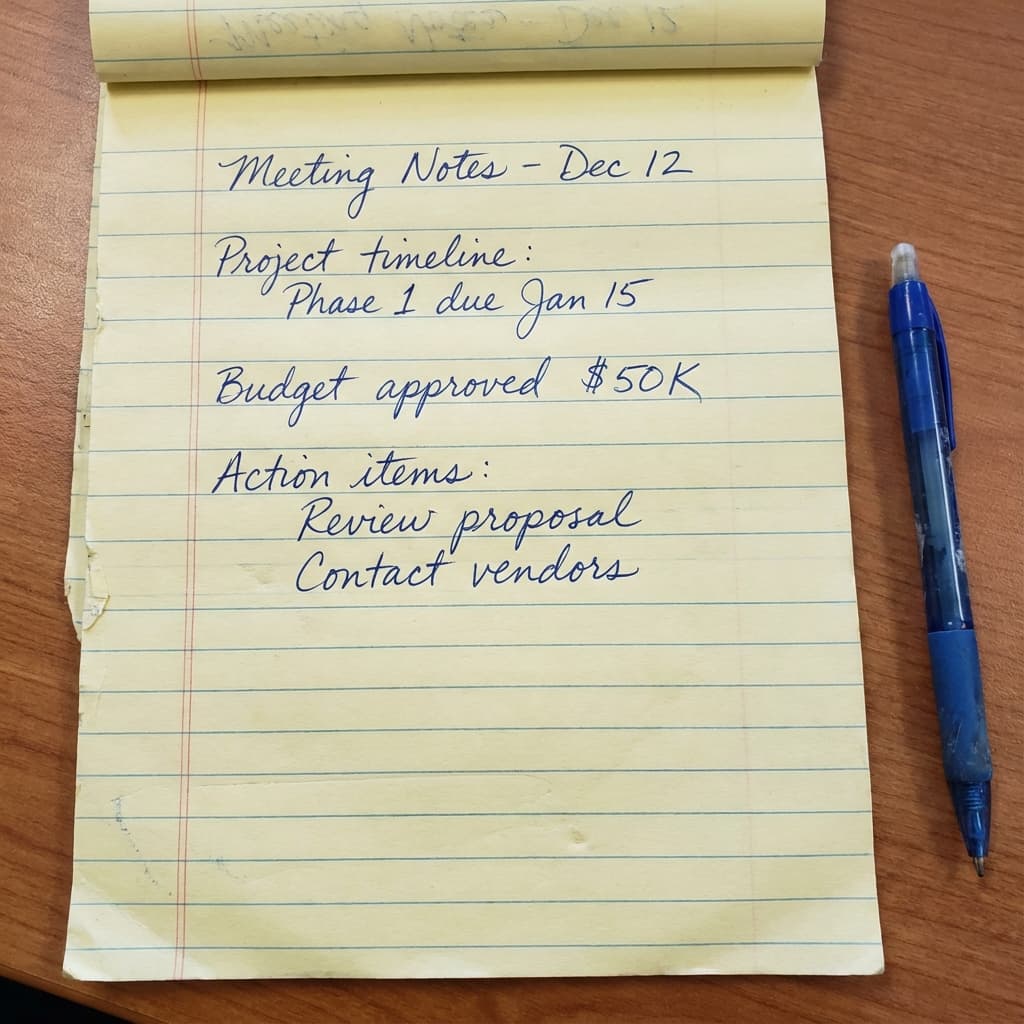 Meeting Notes - Dec 12
Meeting Notes – Dec 12
Project timeline:
Phase 1 due Jan 15
Budget approved $50K
Action items:
Review proposal
Contact vendors